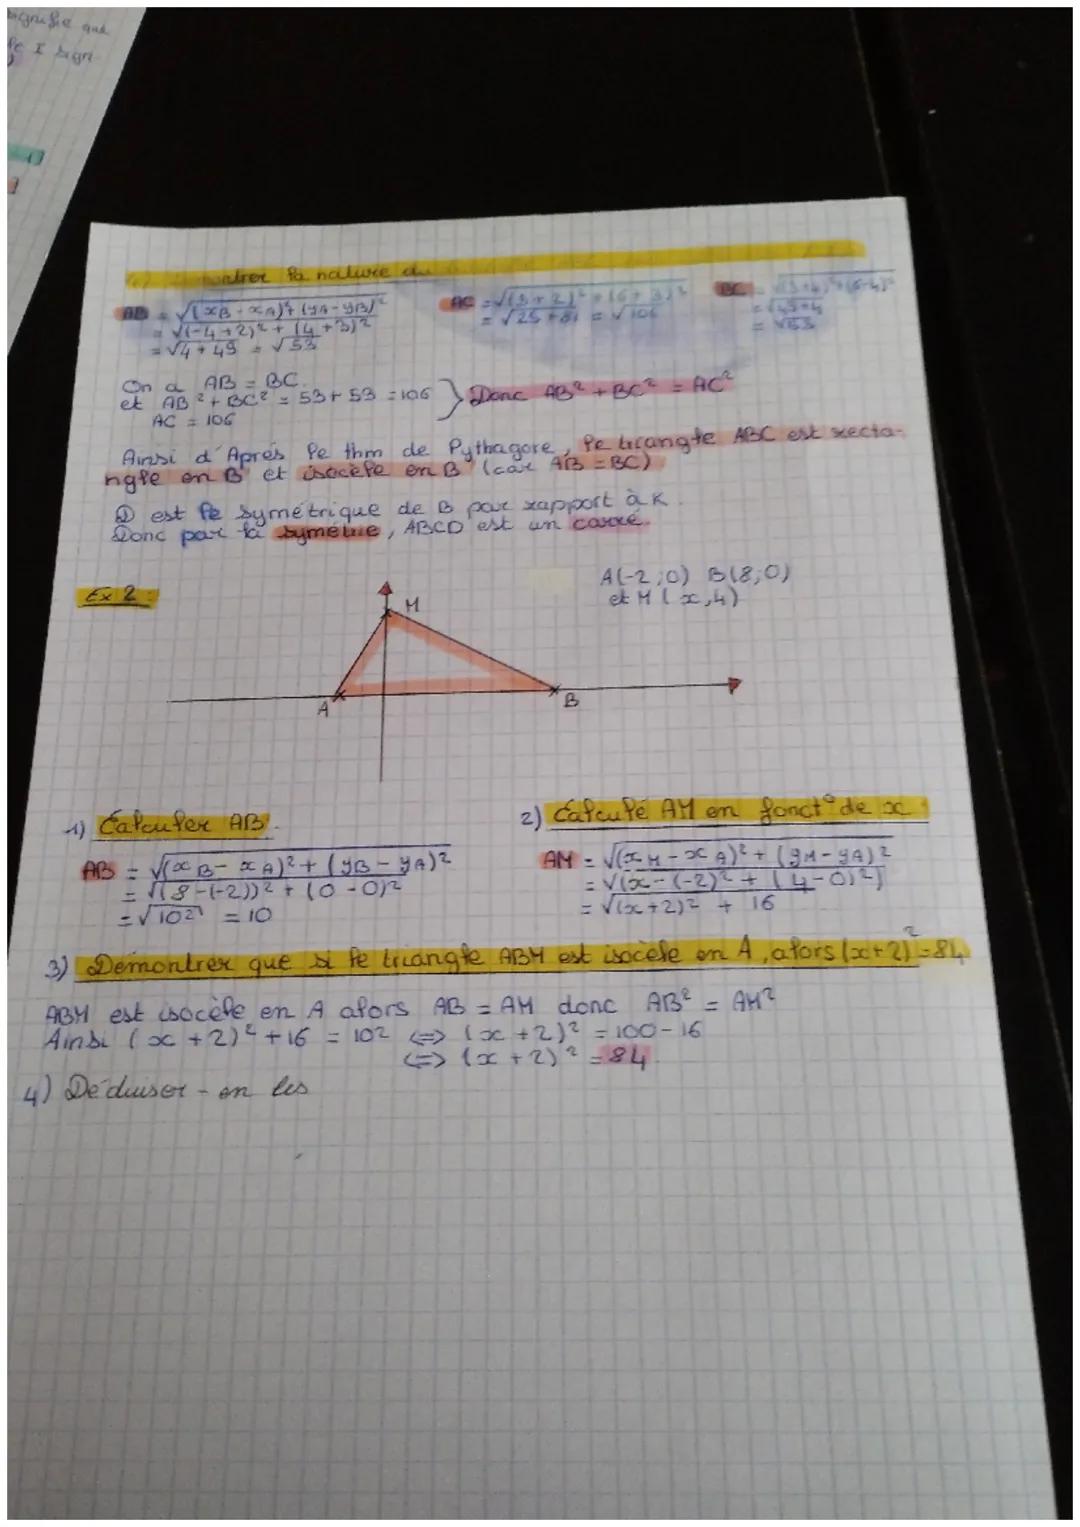 signifie que
montrer la nature du
AB = √(xB - xA)² + (yA - yB)²
= √(-4+2)² + (4+3)²
= √4+49 = √53
AC = √(3+2)² + (6+3)²
= √25+81 = √106
BC = √(3+4)² + (6-4)²
= √49+4
= √53
On a AB = BC.
et AB² + BC² = 53+53 = 106
AC = 106
} Donc AB² + BC² = AC²
Ainsi d'Aprés le thm de Pythagore, le triangle ABC est recta-
ngle en B et isocèle en B (car AB = BC)
D est le symétrique de B par rapport à K.
Donc par la symétrie, ABCD est un carré.
Ex 2 :
A(-2;0) B(8;0)
et M(x,4)
M
A
B
1) Calculer AB.
AB = √(xB - xA)² + (yB - yA)²
= √(8-(-2))² + (0-0)²
= √10² = 10
2) Calculé AM en fonct° de x
AM = √(xM - xA)² + (yM - yA)²
= √(x-(-2)² + (4-0)²)
= √(x+2)² + 16
3) Démontrer que si le triangle ABM est isocèle en A, alors (x+2)² = 84
ABM est isocèle en A alors AB = AM donc AB² = AM²
Ainsi (x+2)² + 16 = 10² <=> (x+2)² = 100-16
<=> (x+2)² = 84
4) Déduiser-en les